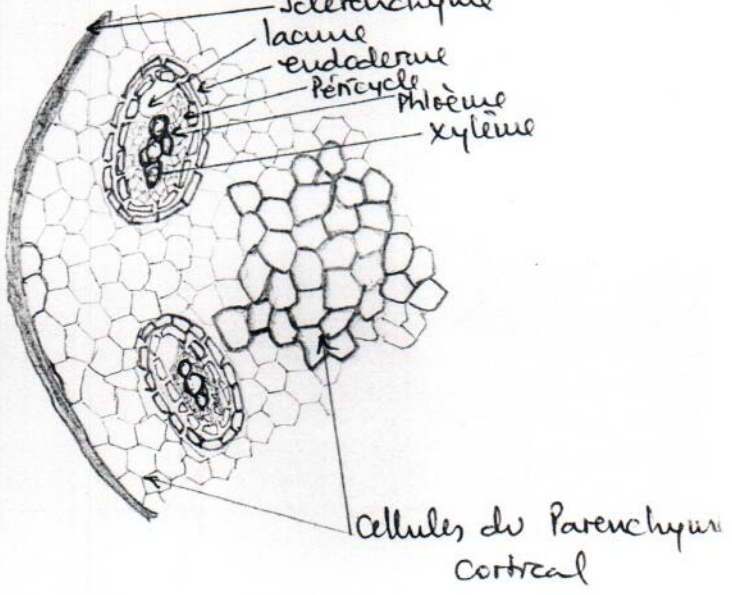 Sclérenchyme
lacune
endoderme
Péricycle
Phloème
xylème
Cellules du Parenchyme
cortical